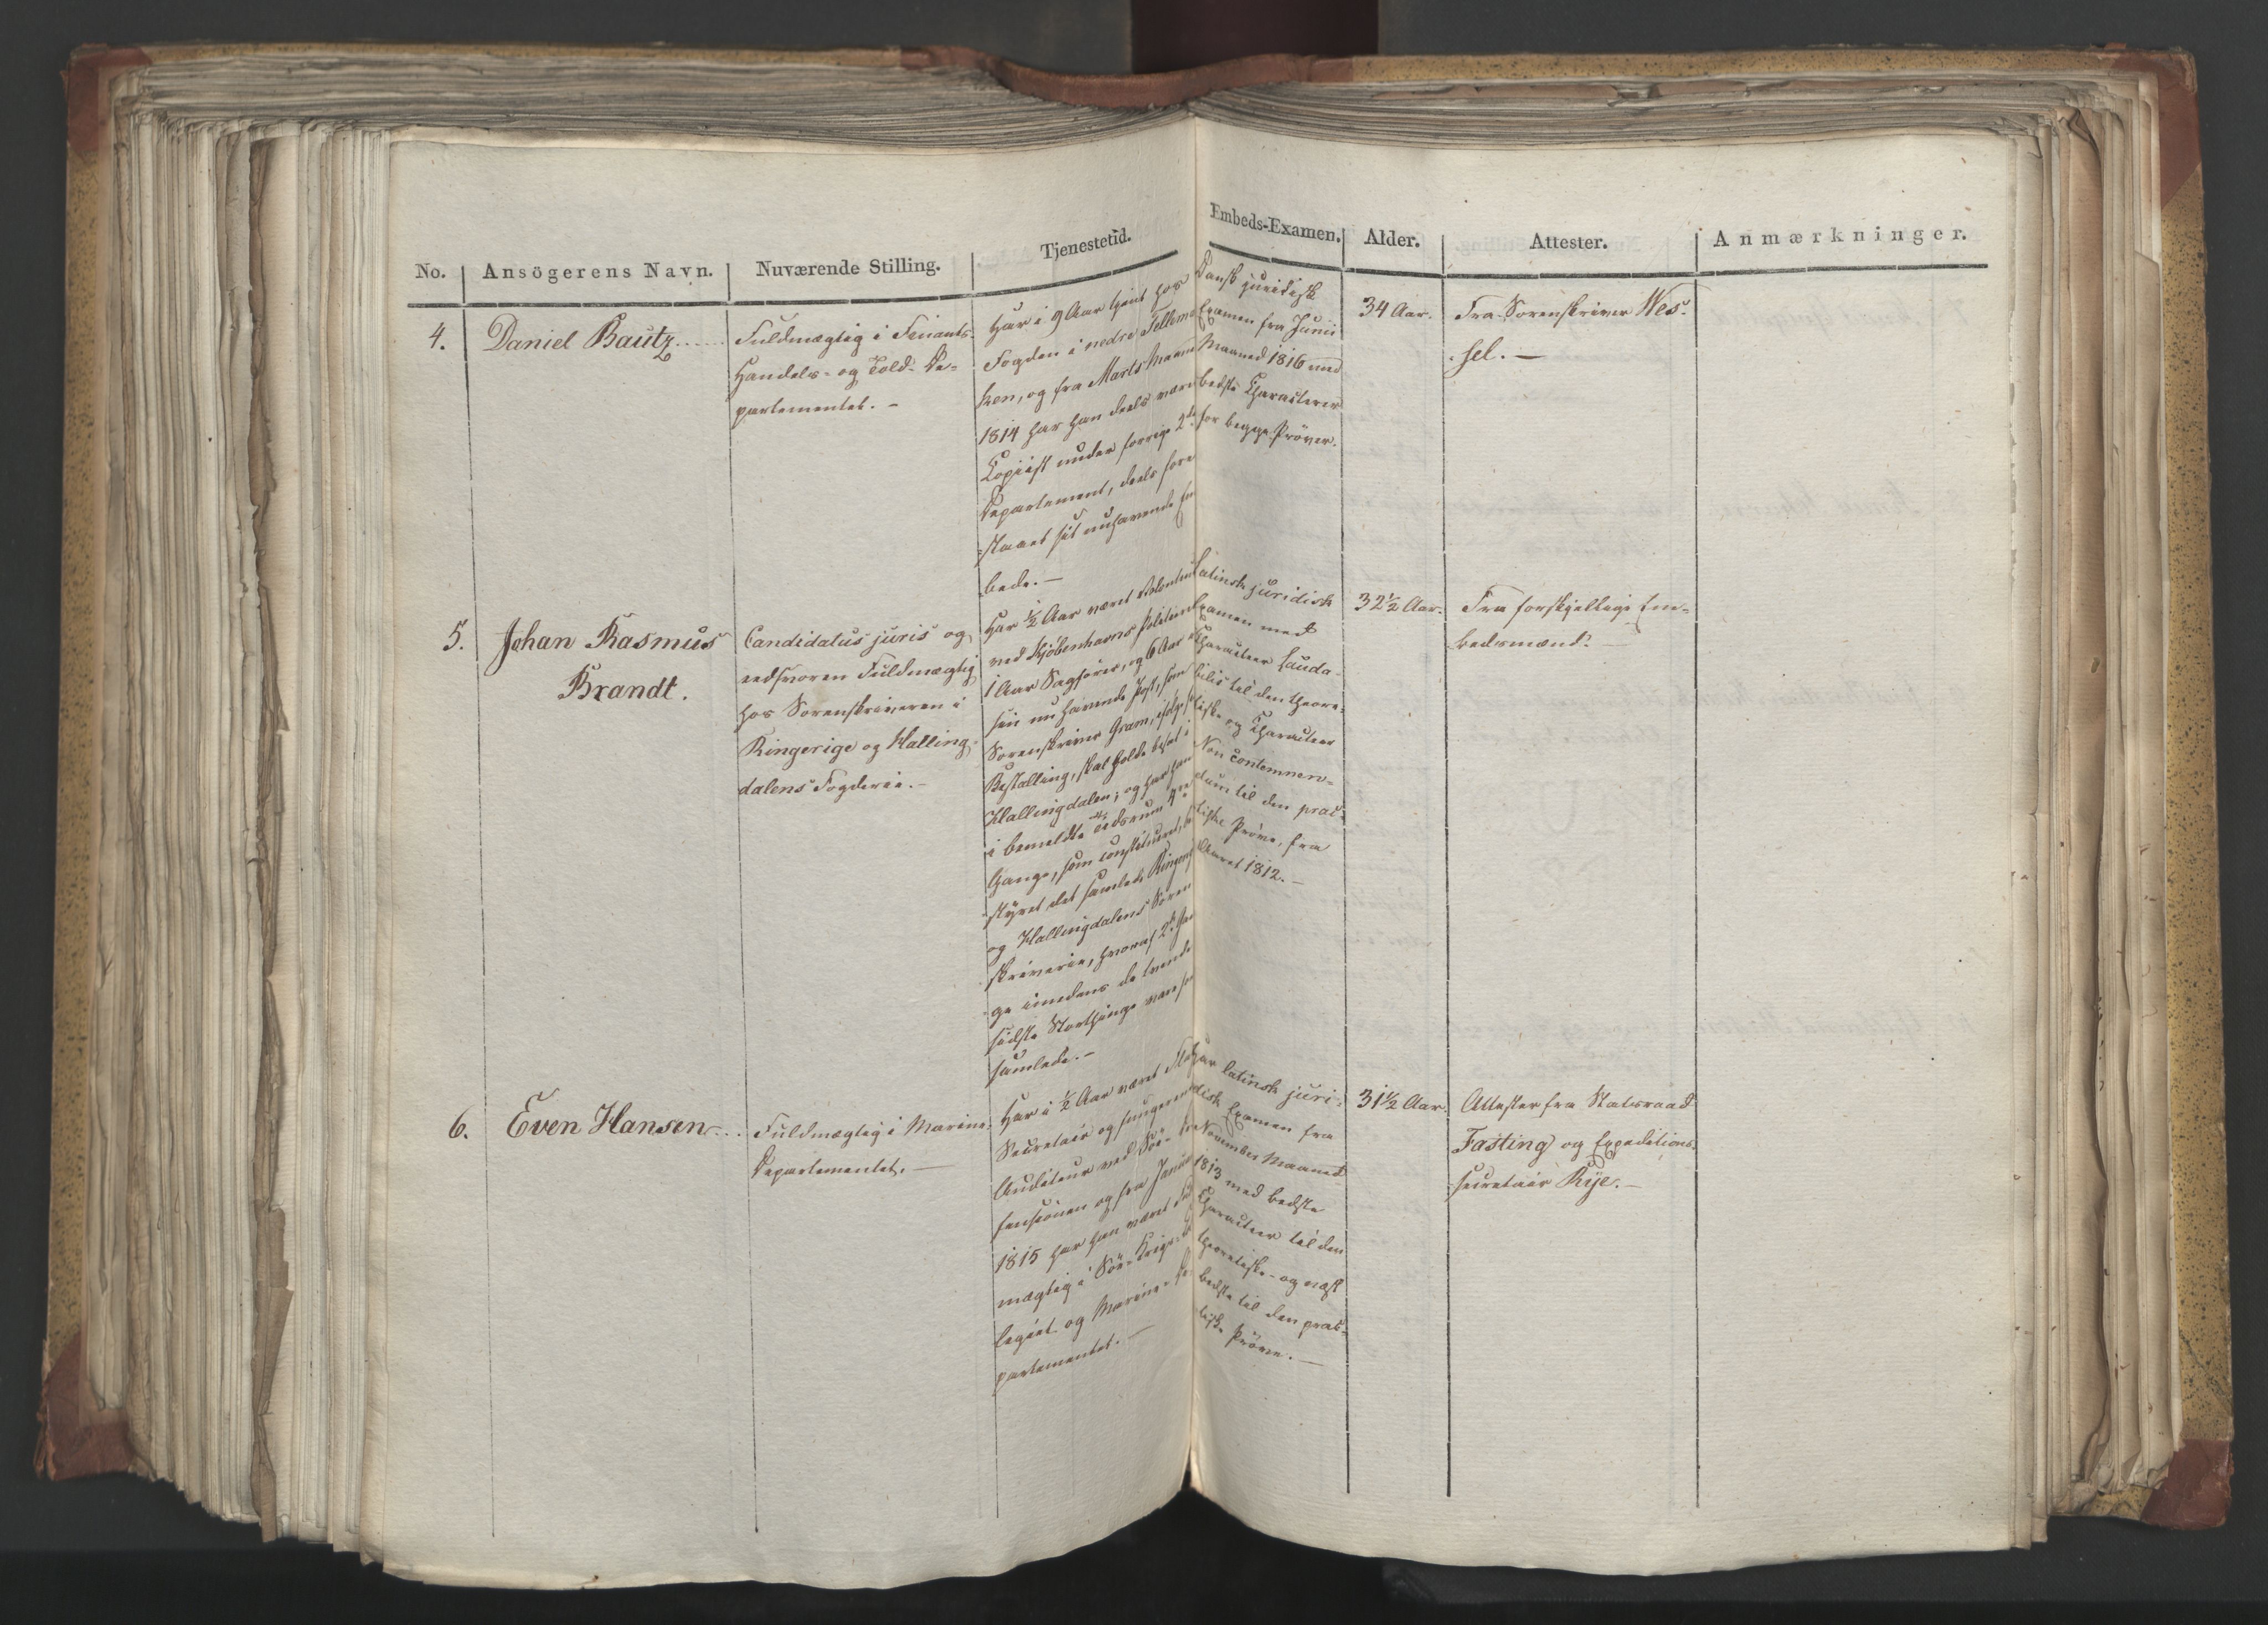 No. Ansögerens Navn. Nuværende Stilling. Tjenestetid. Embeds-Examen. Alder. Attester. Anmærkninger.
4.
Daniel Bautz
Fuldmægtig i Finants-
Handels- og Told-De-
partementet. -
Har i 9 Aar tjent hos
Fogden i nedre Tellema
ken, og fra Marts Maaned
1814 har han deels været
Copiist under forrige 2det
Departement, deels fore
staaet sit nuhavende Em
bede. —
Dansk juridisk
Examen fra Junii
Maaned 1816 med
bedste Characterer
for begge Prøver.
34 Aar.
Fra Sorenskriver Wes-
sel. —
5.
Johan Rasmus
Brandt.
Candidatus juris og
eedsvoren Fuldmægtig
hos Sorenskriveren i
Ringerige og Halling-
dalens Fogderie. -
Har ½ Aar været Volontair
ved Kjøbenhavns Politie
1 Aar Sagfører, og 6 Aar i
sin nu havende Post, som
Sorenskriver Gram, ifølge
Bestalling, skal holde besat i
Hallingdalen; og har han
i bemeldte Tidsrum 4re
Gange, som constitueret, be
styret det samlede Ringerigs
og Hallingdalens Soren
skriverie, hvoraf 2de Gan
ge imedens de tvende
sidste Storthinge vare for
samlede. -
Latinsk juridisk
Examen med
Characteer Lauda-
bilis til den theore-
tiske og Characteer
Non contemnen-
dum til den prac-
tiske Prøve, fra
Aaret 1812. —
32½ Aar.
Fra forskjellige Em-
bedsmænd. —
6.
Even Hansen
Fuldmægtig i Marine-
Departementet. —
Har i ½ Aar været
Secretair og fungerende
Auditeur ved Søe-
fensionen og fra Januar
1815 har han været Fuld
mægtig i Søe-Krigs-Col
legiet og Marine-De
partementet. —
Har latinsk juri-
disk Examen fra
November Maaned
1813 med bedste
Characteer til den
theoretiske- og næst
bedste til den prac-
tiske Prøve. —
31½ Aar.
Attester fra Statsraad
Fasting og Expeditions-
secretair Rye. —